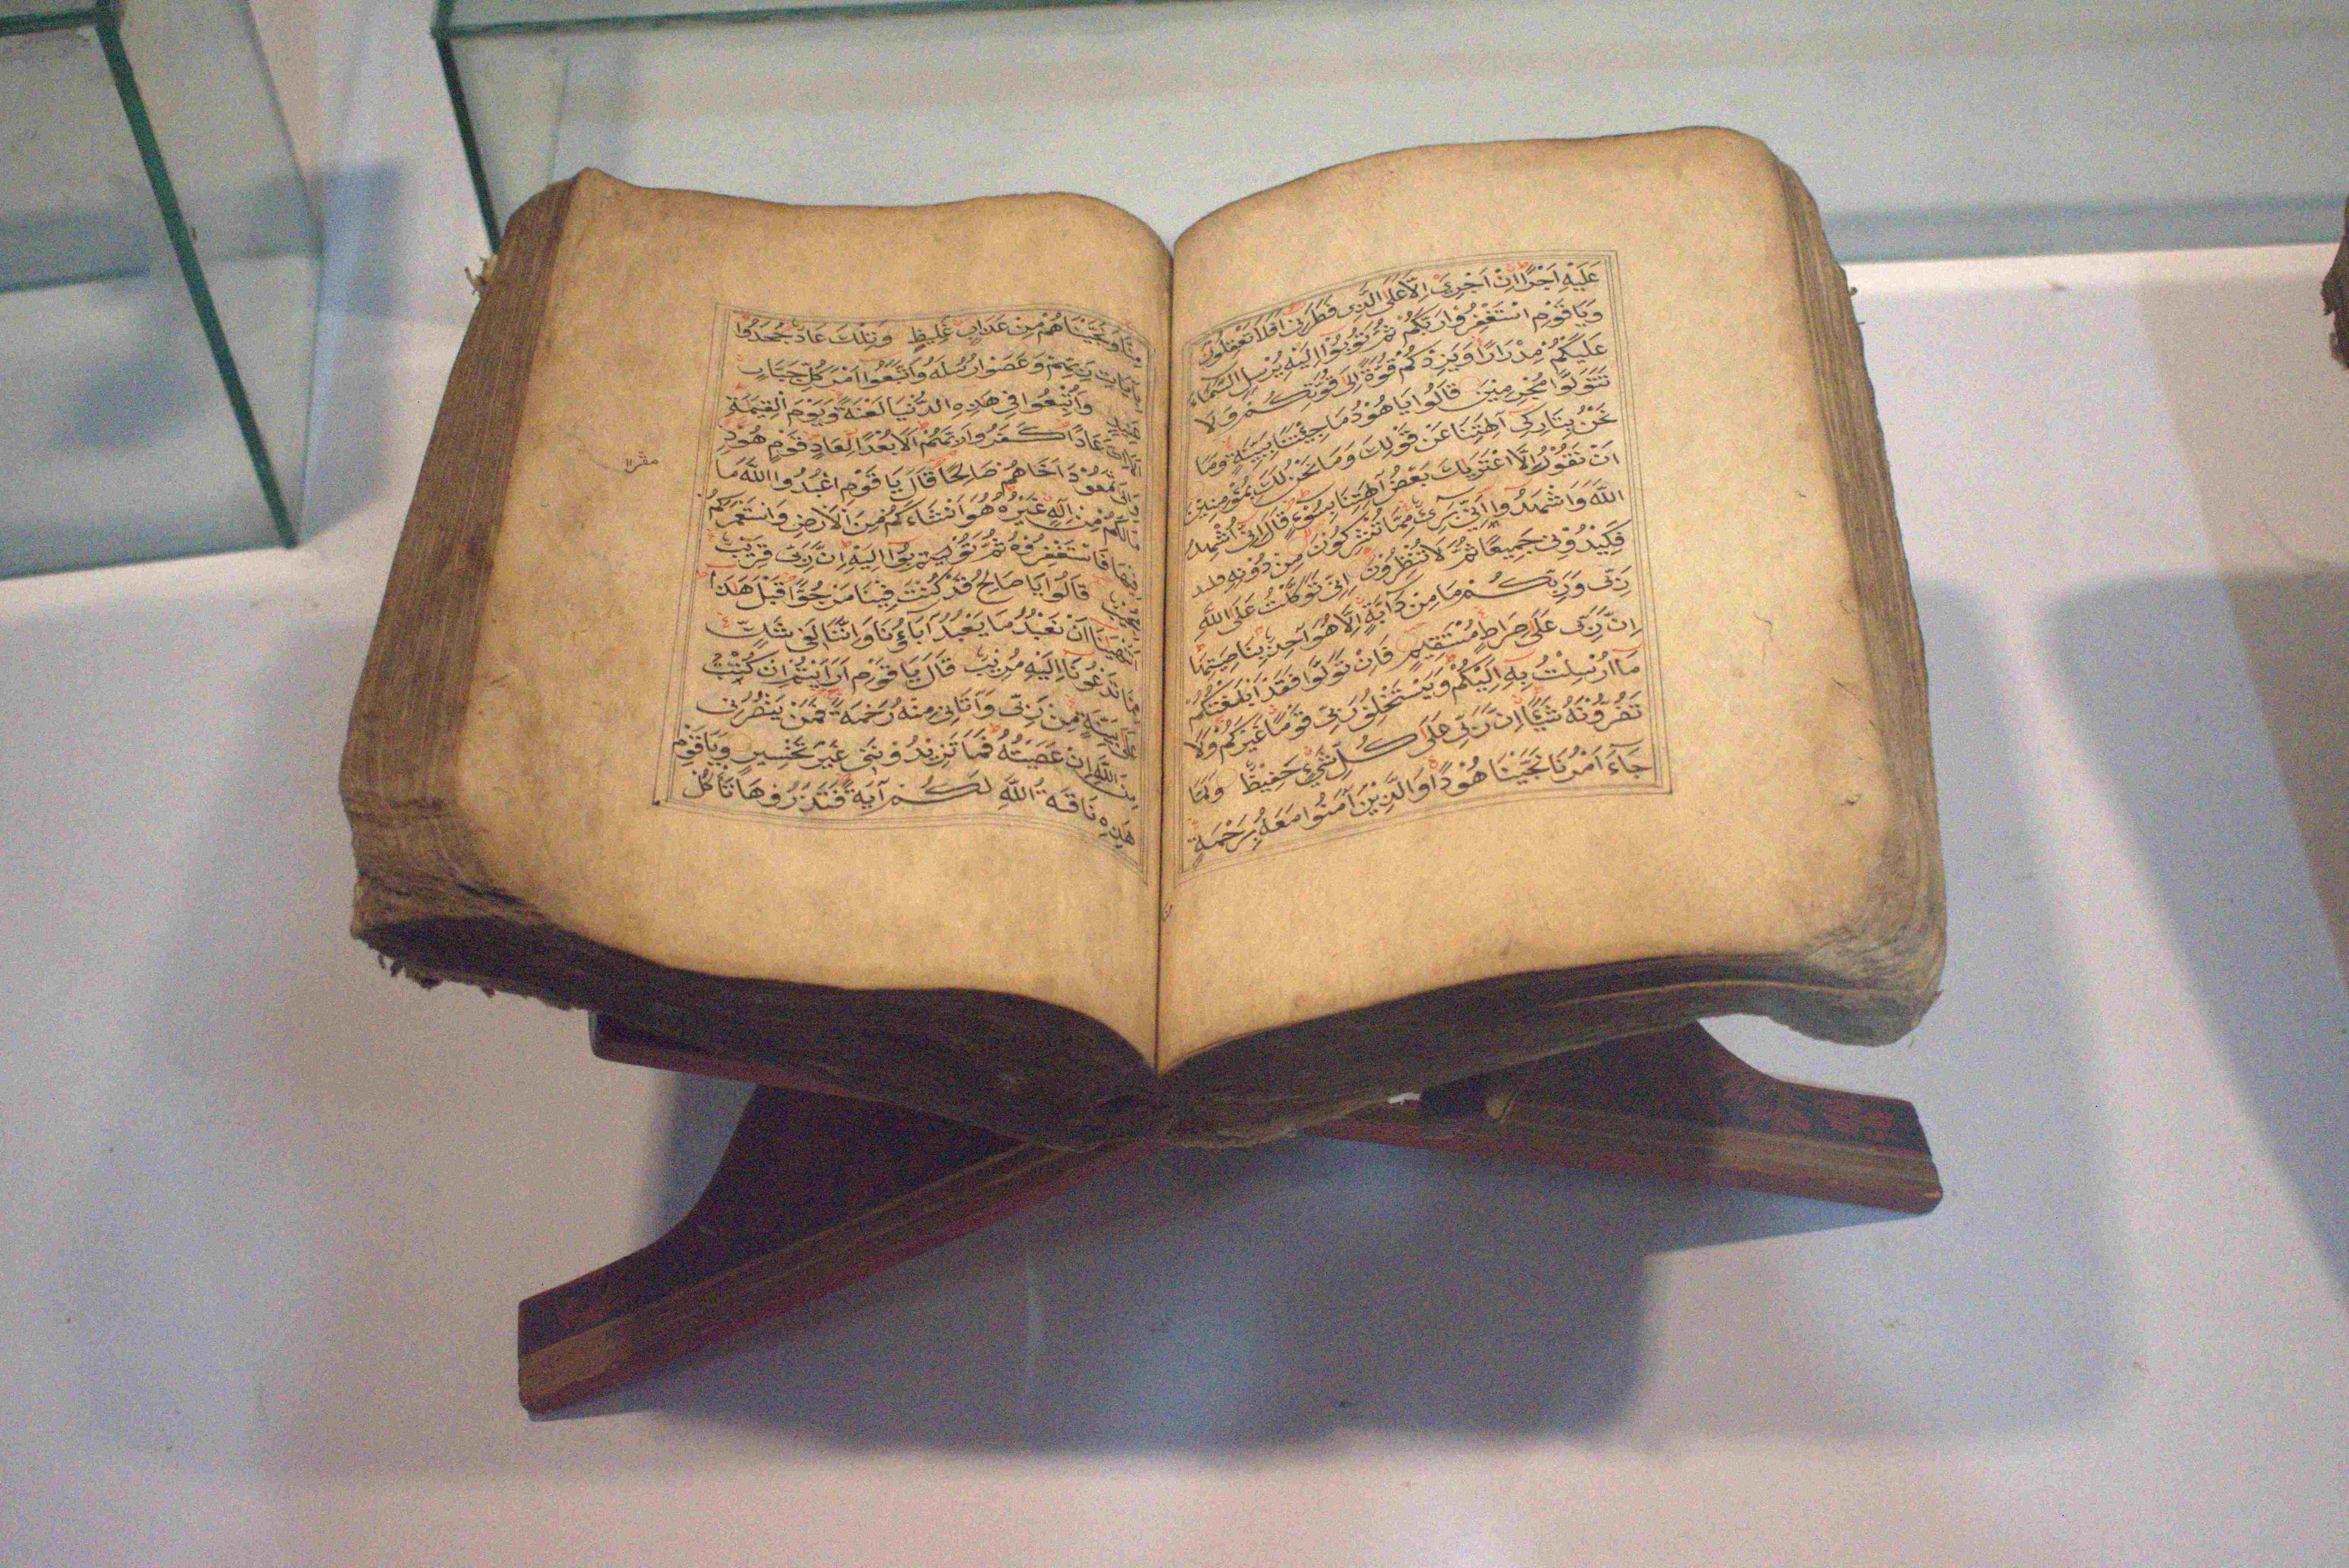 عَلَيْهِ اَجْرًا اِنْ اَجْرِيَ اِلَّا عَلَى الَّذِى فَطَرَنِى اَفَلَا تَعْقِلُونَ
وَيَا قَوْمِ اسْتَغْفِرُوا رَبَّكُمْ ثُمَّ تُوبُوا اِلَيْهِ يُرْسِلِ السَّمَاءَ
عَلَيْكُمْ مِدْرَارًا وَيَزِدْكُمْ قُوَّةً اِلَى قُوَّتِكُمْ وَلَا
تَتَوَلَّوْا مُجْرِمِينَ قَالُوا يَا هُودُ مَا جِئْتَنَا بِبَيِّنَةٍ وَمَا
نَحْنُ بِتَارِكِى آلِهَتِنَا عَنْ قَوْلِكَ وَمَا نَحْنُ لَكَ بِمُؤْمِنِينَ
اِنْ نَقُولُ اِلَّا اعْتَرَيكَ بَعْضُ آلِهَتِنَا بِسُوءٍ قَالَ اِنِّى اُشْهِدُ
اللهَ وَاشْهَدُوا اَنِّى بَرِىءٌ مِمَّا تُشْرِكُونَ مِنْ دُونِهِ
فَكِيدُونِى جَمِيعًا ثُمَّ لَا تُنْظِرُونِ اِنِّى تَوَكَّلْتُ عَلَى اللهِ
رَبِّى وَرَبِّكُمْ مَا مِنْ دَابَّةٍ اِلَّا هُوَ آخِذٌ بِنَاصِيَتِهَا
اِنَّ رَبِّى عَلَى صِرَاطٍ مُسْتَقِيمٍ فَاِنْ تَوَلَّوْا فَقَدْ اَبْلَغْتُكُمْ
مَا اُرْسِلْتُ بِهِ اِلَيْكُمْ وَيَسْتَخْلِفُ رَبِّى قَوْمًا غَيْرَكُمْ وَلَا
تَضُرُّونَهُ شَيْئًا اِنَّ رَبِّى عَلَى كُلِّ شَيْءٍ حَفِيظٌ وَلَمَّا
جَاءَ اَمْرُنَا نَجَّيْنَا هُودًا وَالَّذِينَ آمَنُوا مَعَهُ بِرَحْمَةٍ
مِنَّا وَنَجَّيْنَاهُمْ مِنْ عَذَابٍ غَلِيظٍ وَتِلْكَ عَادٌ جَحَدُوا
بِآيَاتِ رَبِّهِمْ وَعَصَوْا رُسُلَهُ وَاتَّبَعُوا اَمْرَ كُلِّ جَبَّارٍ
عَنِيدٍ وَاُتْبِعُوا فِى هَذِهِ الدُّنْيَا لَعْنَةً وَيَوْمَ الْقِيمَةِ
اَلَا اِنَّ عَادًا كَفَرُوا رَبَّهُمْ اَلَا بُعْدًا لِعَادٍ قَوْمِ هُودٍ
وَاِلَى ثَمُودَ اَخَاهُمْ صَالِحًا قَالَ يَا قَوْمِ اعْبُدُوا اللهَ مَا
لَكُمْ مِنْ اِلَهٍ غَيْرُهُ هُوَ اَنْشَاَكُمْ مِنَ الْاَرْضِ وَاسْتَعْمَرَكُمْ
فِيهَا فَاسْتَغْفِرُوهُ ثُمَّ تُوبُوا اِلَيْهِ اِنَّ رَبِّى قَرِيبٌ
مُجِيبٌ قَالُوا يَا صَالِحُ قَدْ كُنْتَ فِينَا مَرْجُوًّا قَبْلَ هَذَا
اَتَنْهَينَا اَنْ نَعْبُدَ مَا يَعْبُدُ آبَاؤُنَا وَاِنَّنَا لَفِى شَكٍّ
مِمَّا تَدْعُونَا اِلَيْهِ مُرِيبٍ قَالَ يَا قَوْمِ اَرَاَيْتُمْ اِنْ كُنْتُ
عَلَى بَيِّنَةٍ مِنْ رَبِّى وَآتَانِى مِنْهُ رَحْمَةً فَمَنْ يَنْصُرُنِى
مِنَ اللهِ اِنْ عَصَيْتُهُ فَمَا تَزِيدُونَنِى غَيْرَ تَخْسِيرٍ وَيَا قَوْمِ
هَذِهِ نَاقَةُ اللهِ لَكُمْ آيَةً فَذَرُوهَا تَأْكُلْ